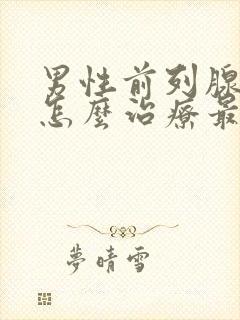 男性前列腺
怎麼治療最
夢晴雪